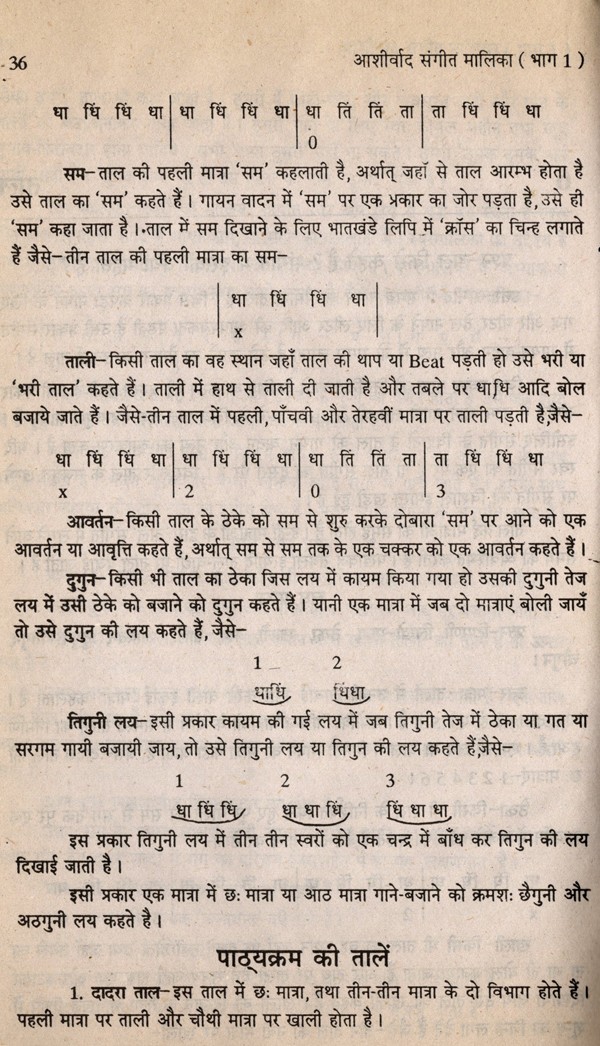 36 आशीर्वाद संगीत मालिका ( भाग 1 )
धा धिं धिं धा | धा धिं धिं धा | धा तिं तिं ता | ता धिं धिं धा
0
सम–ताल की पहली मात्रा 'सम' कहलाती है, अर्थात् जहाँ से ताल आरम्भ होता है
उसे ताल का 'सम' कहते हैं। गायन वादन में 'सम' पर एक प्रकार का जोर पड़ता है, उसे ही
'सम' कहा जाता है। ताल में सम दिखाने के लिए भातखंडे लिपि में 'क्रॉस' का चिन्ह लगाते
हैं जैसे–तीन ताल की पहली मात्रा का सम–
| धा धिं धिं धा |
x
ताली–किसी ताल का वह स्थान जहाँ ताल की थाप या Beat पड़ती हो उसे भरी या
'भरी ताल' कहते हैं। ताली में हाथ से ताली दी जाती है और तबले पर धाधि आदि बोल
बजाये जाते हैं। जैसे-तीन ताल में पहली, पाँचवी और तेरहवीं मात्रा पर ताली पड़ती है,जैसे–
धा धिं धिं धा | धा धिं धिं धा | धा तिं तिं ता | ता धिं धिं धा
x 2 0 3
आवर्तन–किसी ताल के ठेके को सम से शुरु करके दोबारा 'सम' पर आने को एक
आवर्तन या आवृत्ति कहते हैं, अर्थात् सम से सम तक के एक चक्कर को एक आवर्तन कहते हैं।
दुगुन–किसी भी ताल का ठेका जिस लय में कायम किया गया हो उसकी दुगुनी तेज
लय में उसी ठेके को बजाने को दुगुन कहते हैं। यानी एक मात्रा में जब दो मात्राएं बोली जायँ
तो उसे दुगुन की लय कहते हैं, जैसे–
1 2
धाधिं धिंधा
तिगुनी लय–इसी प्रकार कायम की गई लय में जब तिगुनी तेज में ठेका या गत या
सरगम गायी बजायी जाय, तो उसे तिगुनी लय या तिगुन की लय कहते हैं,जैसे–
1 2 3
धा धिं धिं धा धा धिं धिं धा धा
इस प्रकार तिगुनी लय में तीन तीन स्वरों को एक चन्द्र में बाँध कर तिगुन की लय
दिखाई जाती है।
इसी प्रकार एक मात्रा में छः मात्रा या आठ मात्रा गाने-बजाने को क्रमशः छैगुनी और
अठगुनी लय कहते है।
पाठ्यक्रम की तालें
1. दादरा ताल–इस ताल में छः मात्रा, तथा तीन-तीन मात्रा के दो विभाग होते हैं।
पहली मात्रा पर ताली और चौथी मात्रा पर खाली होता है।